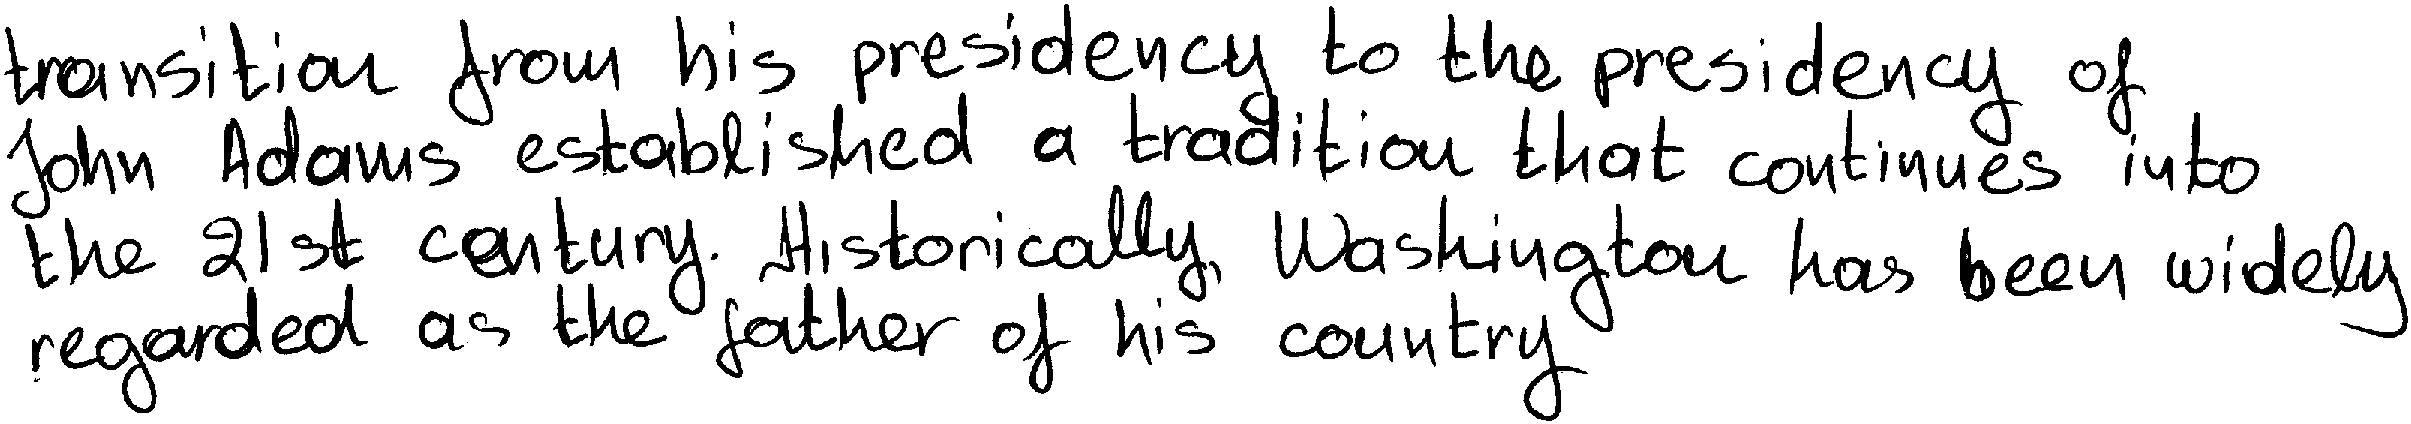 transition from his presidency to the presidency of
John Adams established a tradition that continues into
the 21st century. Historically, Washington has been widely
regarded as the father of his country